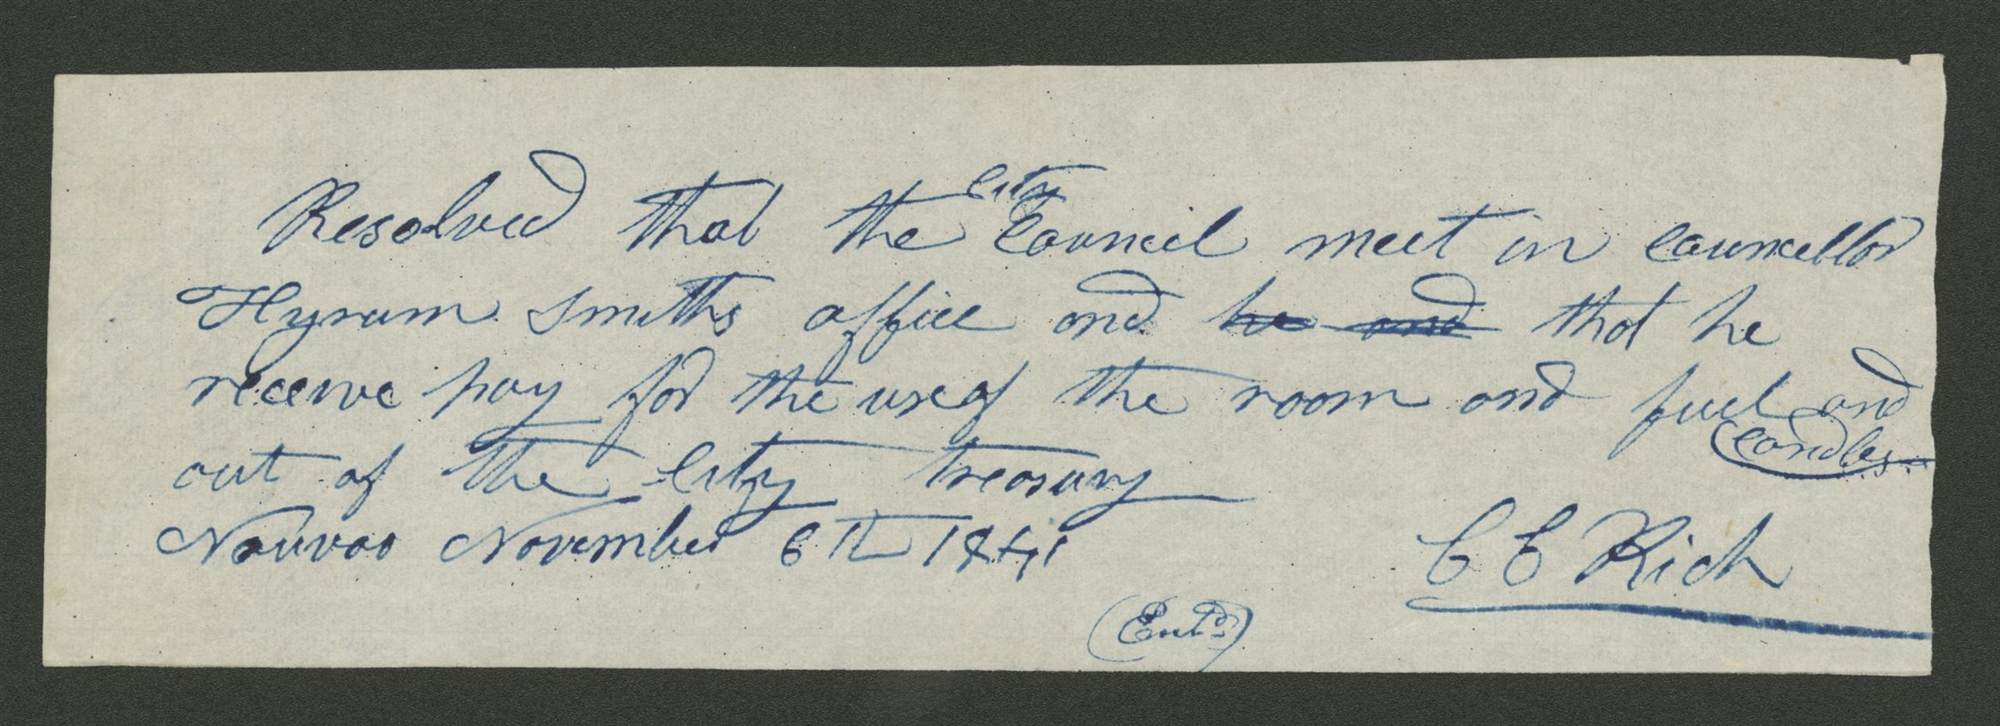 Resolved that the City Council meet in Councellor
Hyrum Smiths office and he and that he
receive pay for the use of the room and fuel and
candles.
out of the City treasury
Nauvoo November 6th 1841
C C Rich
(Entd.)